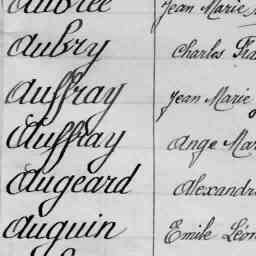 Aubrée Jean Marie
Aubry Charles
Auffray Jean Marie
Auffray Ange
Augeard
Auguin Emile